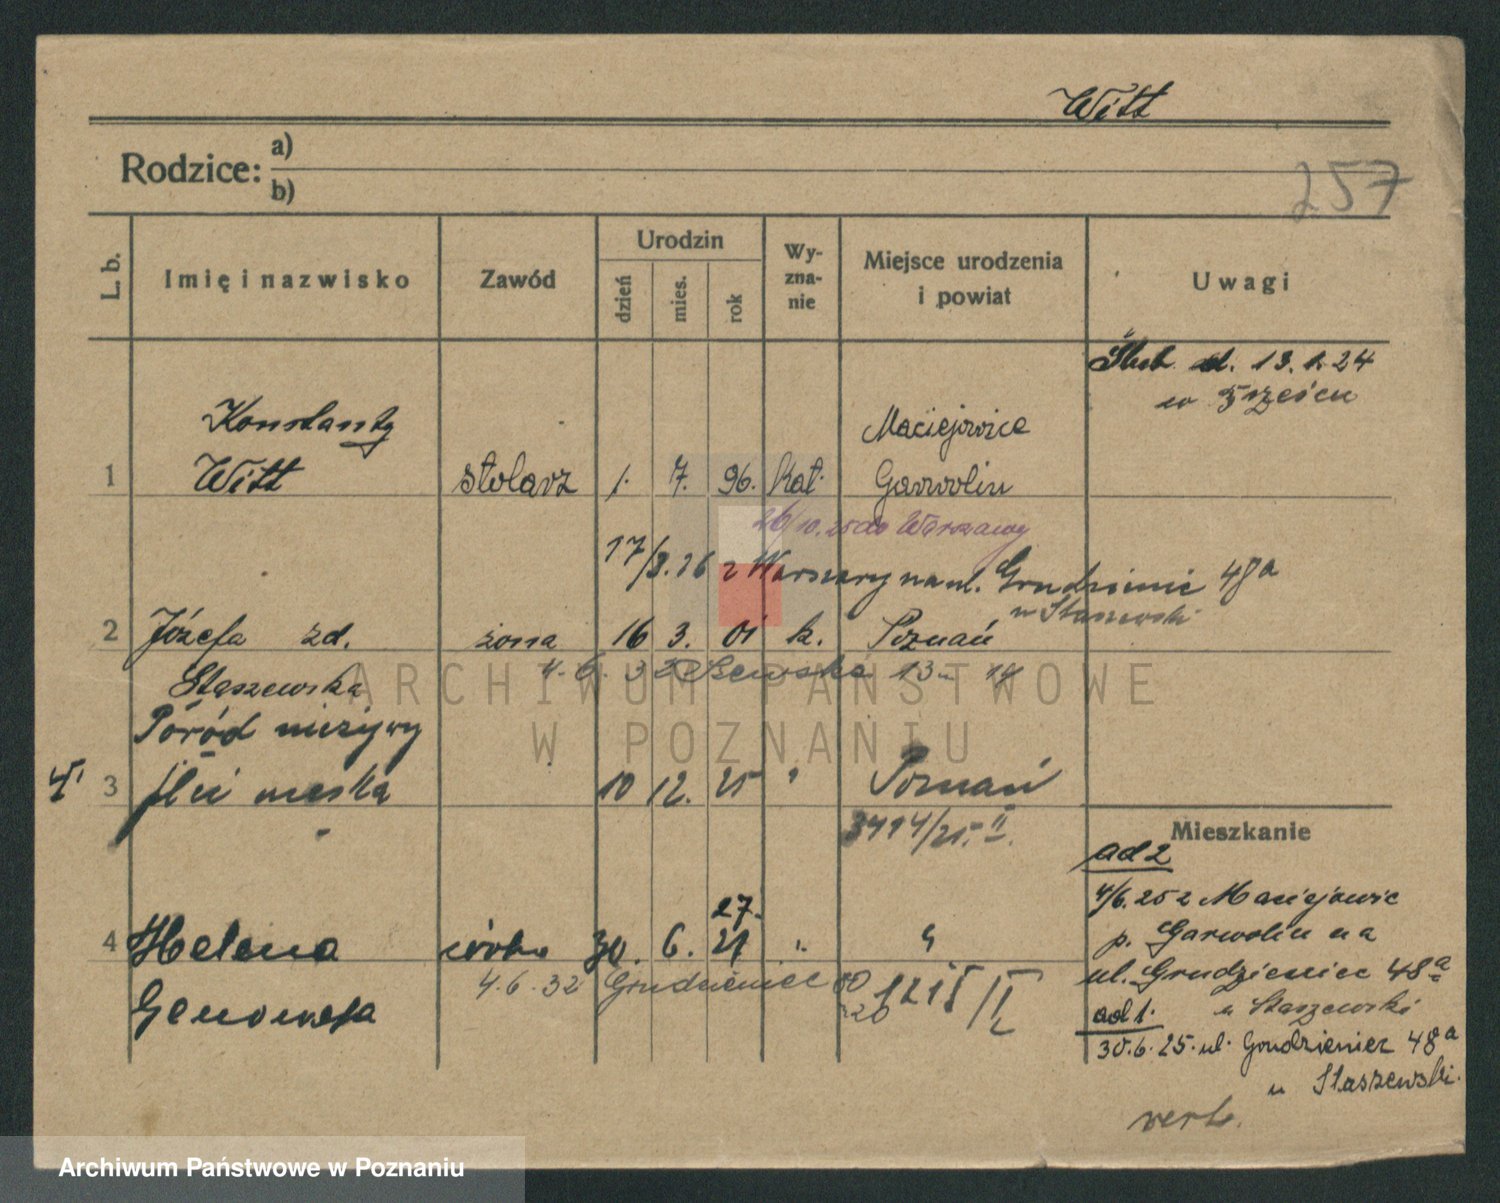 Witt
Rodzice: a)
b)
257
L. b.
Imię i nazwisko
Zawód
Urodzin
dzień
mies.
rok
Wy-
zna-
nie
Miejsce urodzenia
i powiat
Uwagi
Ślub d. 13. 1. 24
w
Konstanty
Maciejowice
1 Witt stolarz 1. 7. 96. Kat. Garwolin
26/10.25 do Warszawy
17/3.26 z Warszawy na ul. Grudzieniec 48a
u Staszewski
2 Józefa zd. żona 16 3. 01 k. Poznań
Staszewska
4. 6. 32 13
Poród nieżywy
3 płci męska 10 12. 25 " Poznań
3414/25. II.
Mieszkanie
ad 2
4/6. 25 z Maciejowic
p. Garwolin na
ul. Grudzieniec 48a
u Staszewski
ad 1.
30.6.25. ul. Grudzieniec 48a
u Staszewski.
27.
4 Helena córka 30. 6. 21 " "
4.6.32 Grudzieniec 50
1215/II
Genowefa
werb.
ARCHIWUM PAŃSTWOWE
W POZNANIU
Archiwum Państwowe w Poznaniu